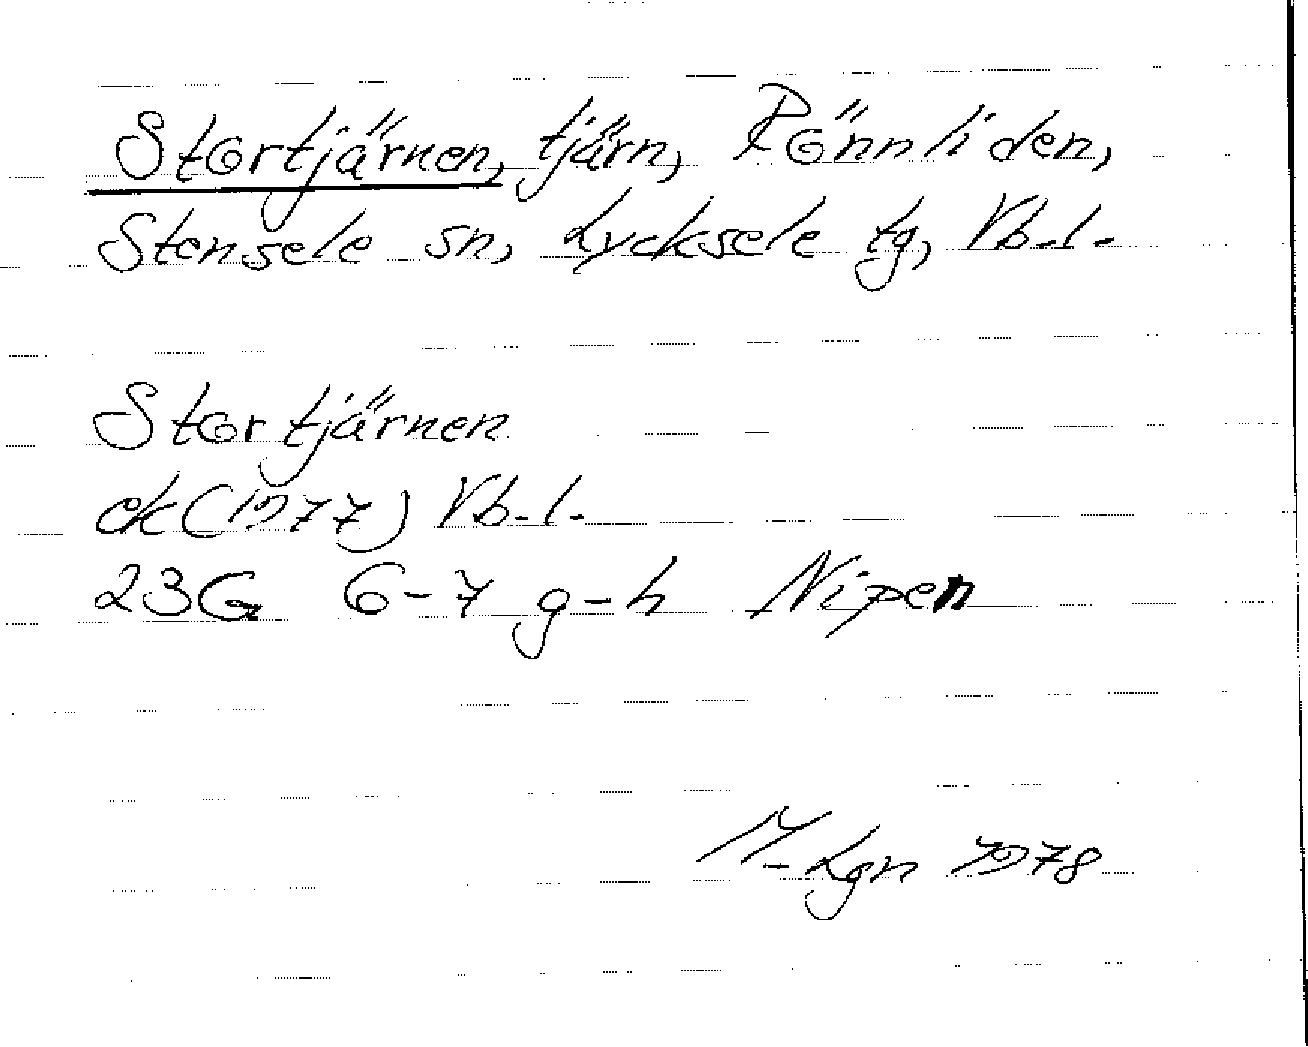 Stortjärnen, tjärn, Rönnliden,
Stensele sn, Lycksele tg, Vb.l.
Stortjärnen
ek (1977) Vb.l.
23G 6-7 g-h Nipen
M-Lgn 1978